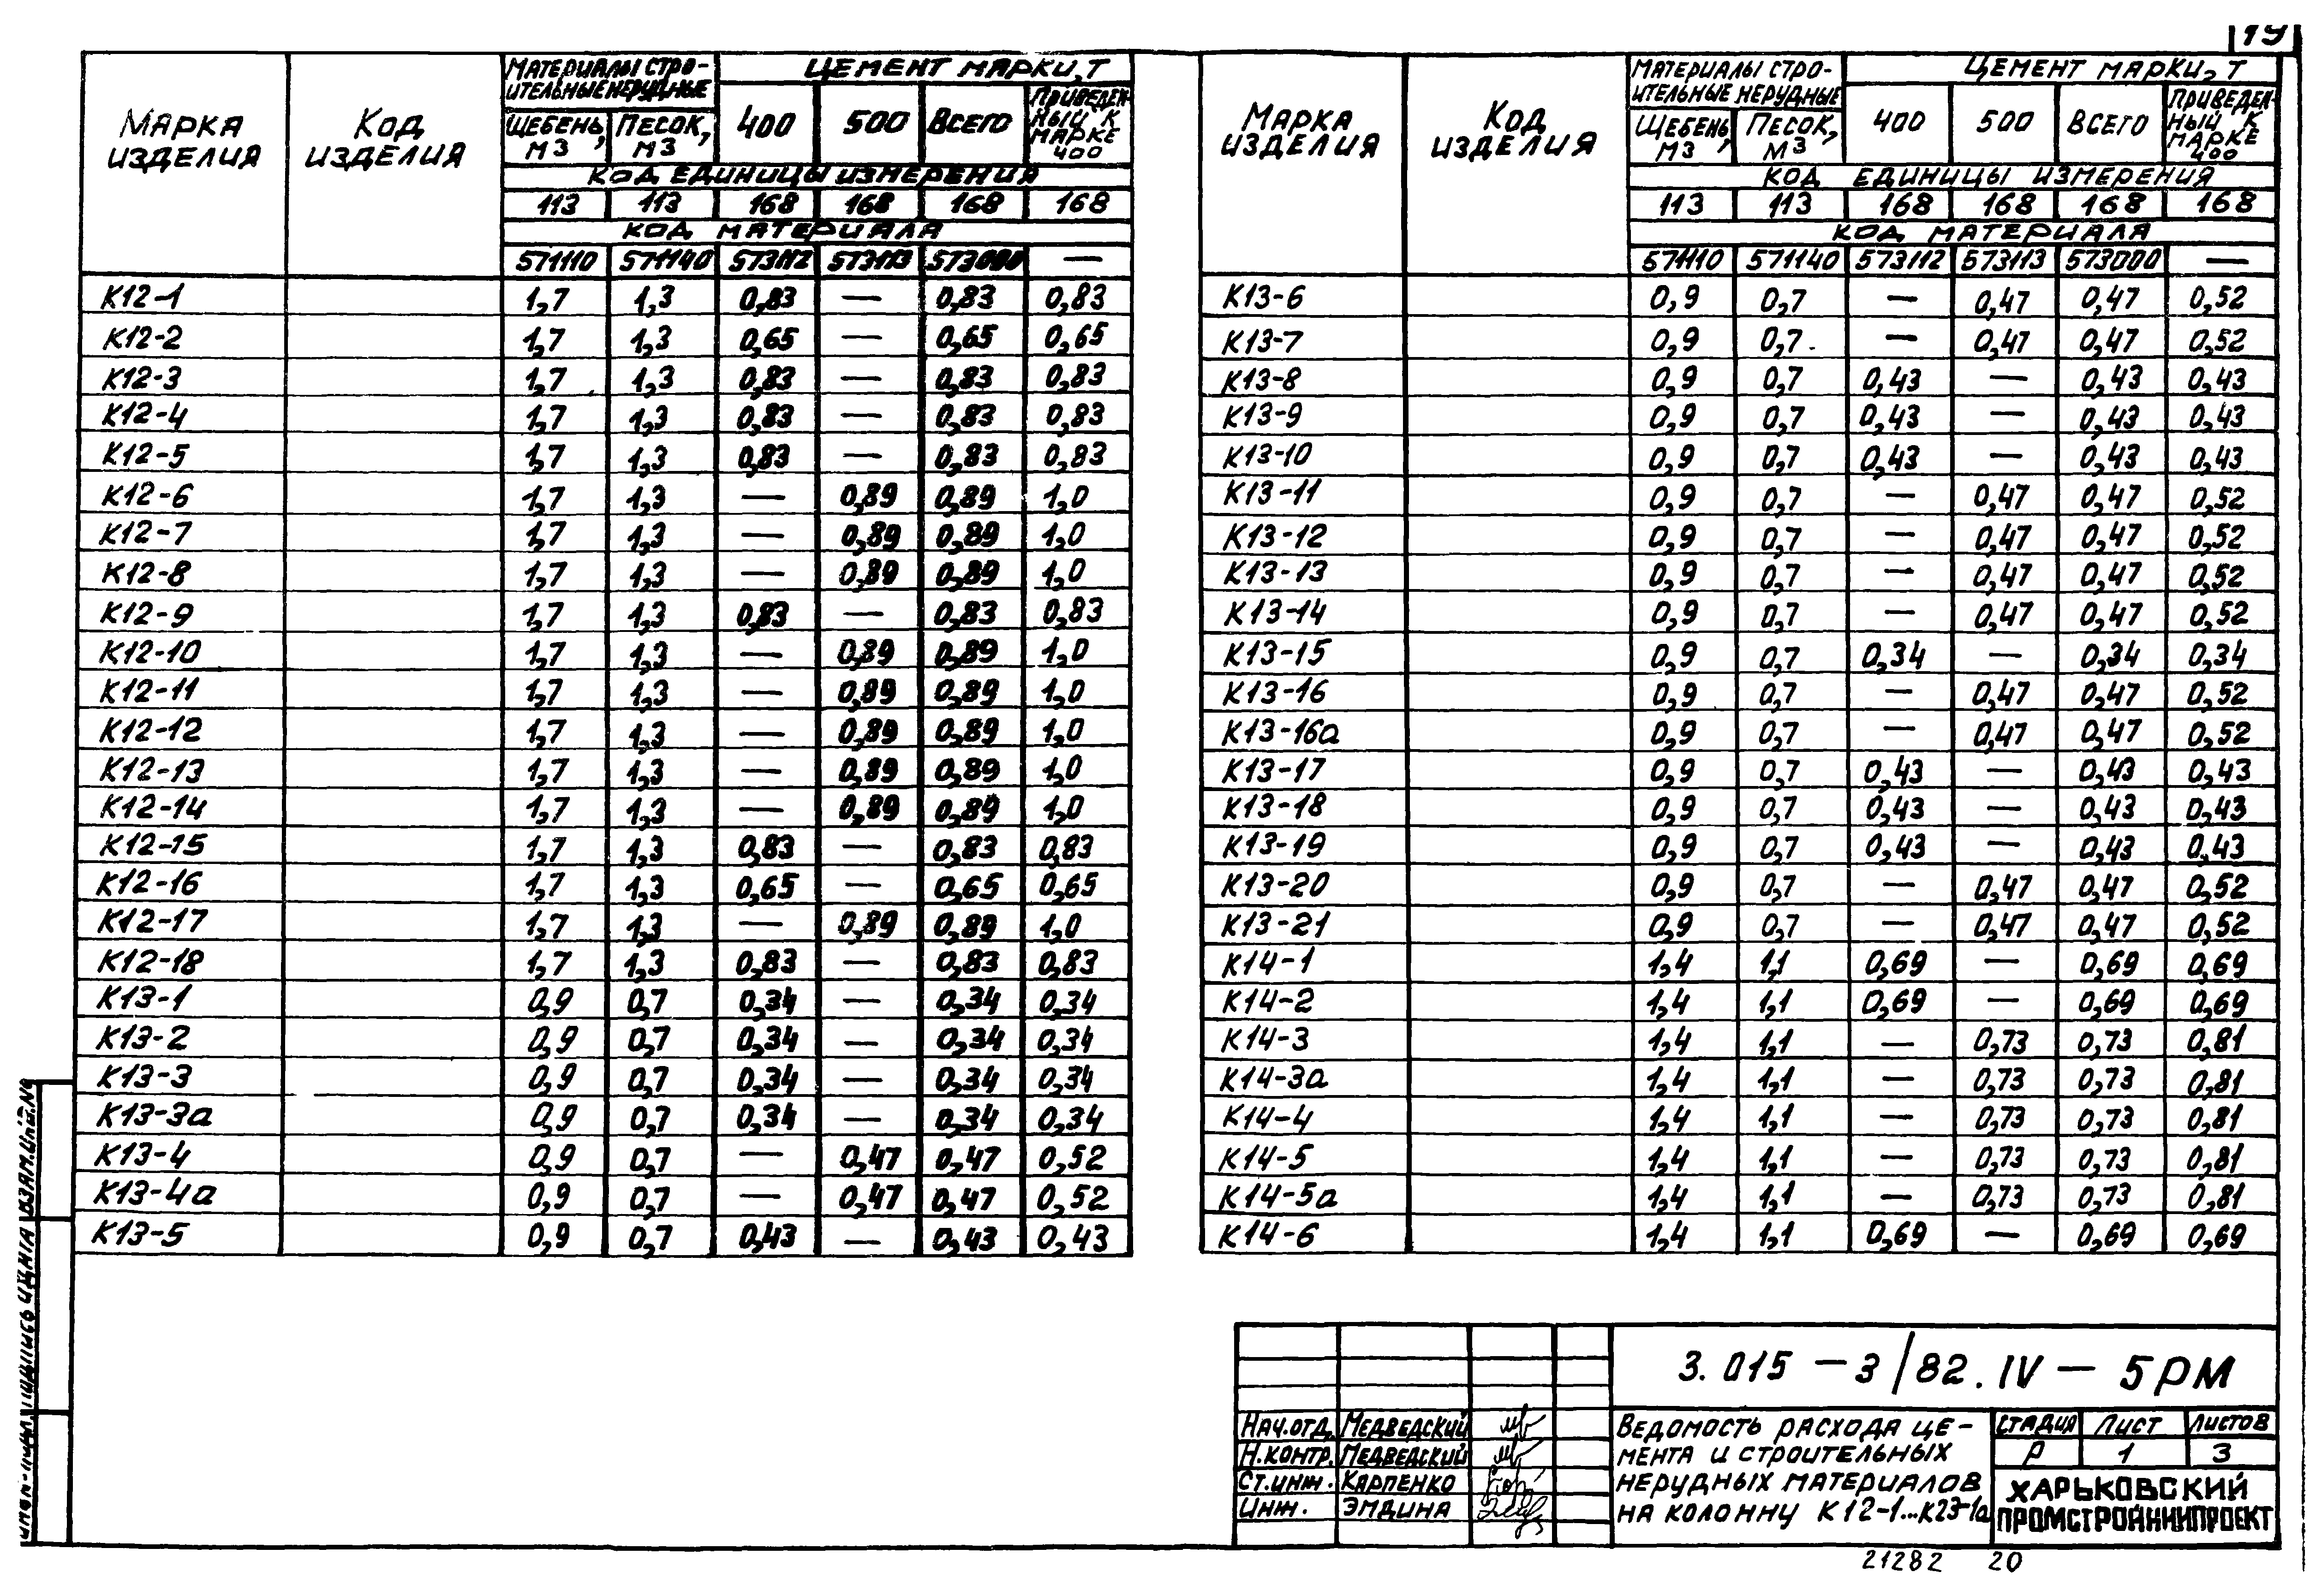 19
МАРКА ИЗДЕЛИЯ | КОД ИЗДЕЛИЯ | МАТЕРИАЛЫ СТРО-ИТЕЛЬНЫЕ НЕРУДНЫЕ | ЦЕМЕНТ МАРКИ, Т
ЩЕБЕНЬ, М3 | ПЕСОК, М3 | 400 | 500 | ВСЕГО | ПРИВЕДЕН-НЫЙ К МАРКЕ 400
КОД ЕДИНИЦЫ ИЗМЕРЕНИЯ
113 | 113 | 168 | 168 | 168 | 168
КОД МАТЕРИАЛА
571110 | 571140 | 573112 | 573113 | 573000 | —
К12-1 | 1,7 | 1,3 | 0,83 | — | 0,83 | 0,83
К12-2 | 1,7 | 1,3 | 0,65 | — | 0,65 | 0,65
К12-3 | 1,7 | 1,3 | 0,83 | — | 0,83 | 0,83
К12-4 | 1,7 | 1,3 | 0,83 | — | 0,83 | 0,83
К12-5 | 1,7 | 1,3 | 0,83 | — | 0,83 | 0,83
К12-6 | 1,7 | 1,3 | — | 0,89 | 0,89 | 1,0
К12-7 | 1,7 | 1,3 | — | 0,89 | 0,89 | 1,0
К12-8 | 1,7 | 1,3 | — | 0,89 | 0,89 | 1,0
К12-9 | 1,7 | 1,3 | 0,83 | — | 0,83 | 0,83
К12-10 | 1,7 | 1,3 | — | 0,89 | 0,89 | 1,0
К12-11 | 1,7 | 1,3 | — | 0,89 | 0,89 | 1,0
К12-12 | 1,7 | 1,3 | — | 0,89 | 0,89 | 1,0
К12-13 | 1,7 | 1,3 | — | 0,89 | 0,89 | 1,0
К12-14 | 1,7 | 1,3 | — | 0,89 | 0,89 | 1,0
К12-15 | 1,7 | 1,3 | 0,83 | — | 0,83 | 0,83
К12-16 | 1,7 | 1,3 | 0,65 | — | 0,65 | 0,65
К12-17 | 1,7 | 1,3 | — | 0,89 | 0,89 | 1,0
К12-18 | 1,7 | 1,3 | 0,83 | — | 0,83 | 0,83
К13-1 | 0,9 | 0,7 | 0,34 | — | 0,34 | 0,34
К13-2 | 0,9 | 0,7 | 0,34 | — | 0,34 | 0,34
К13-3 | 0,9 | 0,7 | 0,34 | — | 0,34 | 0,34
К13-3а | 0,9 | 0,7 | 0,34 | — | 0,34 | 0,34
К13-4 | 0,9 | 0,7 | — | 0,47 | 0,47 | 0,52
К13-4а | 0,9 | 0,7 | — | 0,47 | 0,47 | 0,52
К13-5 | 0,9 | 0,7 | 0,43 | — | 0,43 | 0,43
МАРКА ИЗДЕЛИЯ | КОД ИЗДЕЛИЯ | МАТЕРИАЛЫ СТРО-ИТЕЛЬНЫЕ НЕРУДНЫЕ | ЦЕМЕНТ МАРКИ, Т
ЩЕБЕНЬ, М3 | ПЕСОК, М3 | 400 | 500 | ВСЕГО | ПРИВЕДЕН-НЫЙ К МАРКЕ 400
КОД ЕДИНИЦЫ ИЗМЕРЕНИЯ
113 | 113 | 168 | 168 | 168 | 168
КОД МАТЕРИАЛА
571110 | 571140 | 573112 | 573113 | 573000 | —
К13-6 | 0,9 | 0,7 | — | 0,47 | 0,47 | 0,52
К13-7 | 0,9 | 0,7 | — | 0,47 | 0,47 | 0,52
К13-8 | 0,9 | 0,7 | 0,43 | — | 0,43 | 0,43
К13-9 | 0,9 | 0,7 | 0,43 | — | 0,43 | 0,43
К13-10 | 0,9 | 0,7 | 0,43 | — | 0,43 | 0,43
К13-11 | 0,9 | 0,7 | — | 0,47 | 0,47 | 0,52
К13-12 | 0,9 | 0,7 | — | 0,47 | 0,47 | 0,52
К13-13 | 0,9 | 0,7 | — | 0,47 | 0,47 | 0,52
К13-14 | 0,9 | 0,7 | — | 0,47 | 0,47 | 0,52
К13-15 | 0,9 | 0,7 | 0,34 | — | 0,34 | 0,34
К13-16 | 0,9 | 0,7 | — | 0,47 | 0,47 | 0,52
К13-16а | 0,9 | 0,7 | — | 0,47 | 0,47 | 0,52
К13-17 | 0,9 | 0,7 | 0,43 | — | 0,43 | 0,43
К13-18 | 0,9 | 0,7 | 0,43 | — | 0,43 | 0,43
К13-19 | 0,9 | 0,7 | 0,43 | — | 0,43 | 0,43
К13-20 | 0,9 | 0,7 | — | 0,47 | 0,47 | 0,52
К13-21 | 0,9 | 0,7 | — | 0,47 | 0,47 | 0,52
К14-1 | 1,4 | 1,1 | 0,69 | — | 0,69 | 0,69
К14-2 | 1,4 | 1,1 | 0,69 | — | 0,69 | 0,69
К14-3 | 1,4 | 1,1 | — | 0,73 | 0,73 | 0,81
К14-3а | 1,4 | 1,1 | — | 0,73 | 0,73 | 0,81
К14-4 | 1,4 | 1,1 | — | 0,73 | 0,73 | 0,81
К14-5 | 1,4 | 1,1 | — | 0,73 | 0,73 | 0,81
К14-5а | 1,4 | 1,1 | — | 0,73 | 0,73 | 0,81
К14-6 | 1,4 | 1,1 | 0,69 | — | 0,69 | 0,69
ВЗАМ.ИНВ.№
ПОДПИСЬ И ДАТА
3.015 – 3/82.IV – 5РМ
НАЧ.ОТД. МЕДВЕДСКИЙ
Н.КОНТР. МЕДВЕДСКИЙ
СТ.ИНЖ. КАРПЕНКО
ИНЖ. ЭМДИНА
ВЕДОМОСТЬ РАСХОДА ЦЕ-
МЕНТА И СТРОИТЕЛЬНЫХ
НЕРУДНЫХ МАТЕРИАЛОВ
НА КОЛОННУ К12-1...К23-1а
СТАДИЯ | ЛИСТ | ЛИСТОВ
Р | 1 | 3
ХАРЬКОВСКИЙ
ПРОМСТРОЙНИИПРОЕКТ
21282 20